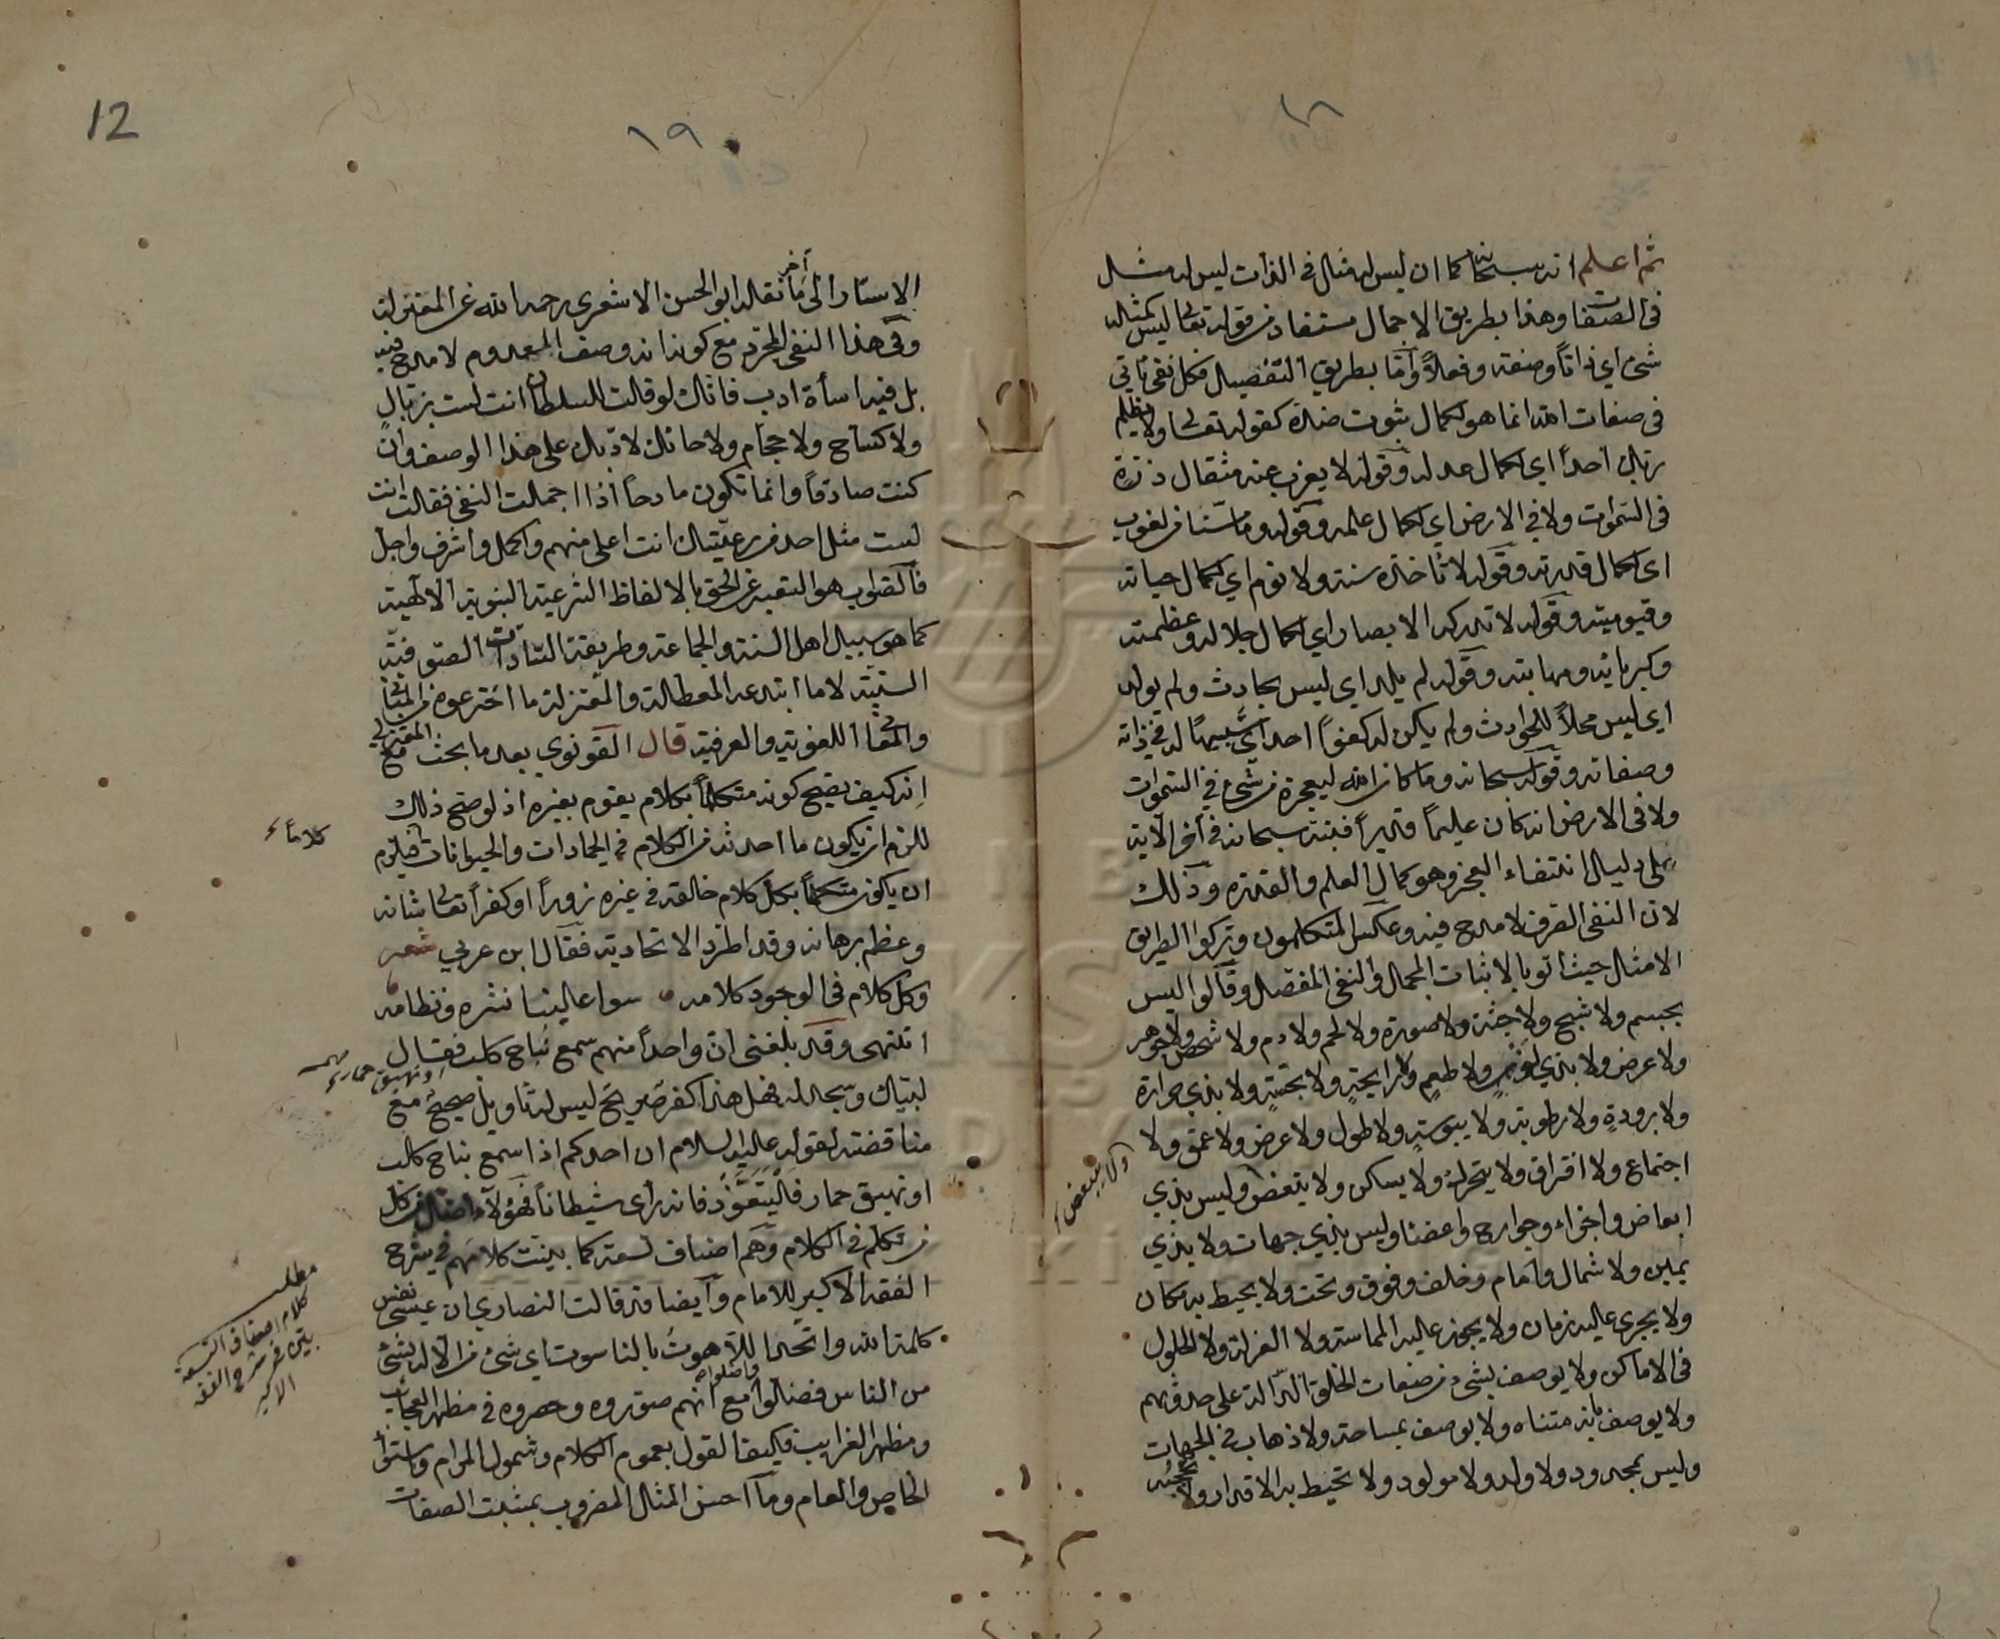 ١٨
ثم اعلم انه سبحانه كما ان ليس له مثال في الذات ليس له مثل
في الصفات وهذا بطريق الاجمال مستفاد من قوله تعالى ليس كمثله
شئ اي ذاتاً وصفة وفعلاً وامّا بطريق التفصيل فكل نفي يأتي
في صفات الله انما هو لكمال ثبوت ضده كقوله تعالى ولا يظلم
ربك احداً اي لكمال عدله وقوله لا يعزب عنه مثقال ذرّة
في السموات ولا في الارض اي لكمال علمه وقوله وما مسّنا من لغوب
اي لكمال قدرته وقوله لا تأخذه سنة ولا نوم اي لكمال حياته
وقيوميته وقوله لا تدركه الابصار اي لكمال جلاله وعظمته
وكبريائه ومهابته وقوله لم يلد اي ليس بحادث ولم يولد
اي ليس محلاً للحوادث ولم يكن له كفواً احد اي شبيهاً له في ذاته
وصفاته وقوله سبحانه وما كان الله ليعجزه من شئ في السموات
ولا في الارض انه كان عليماً قديراً فنبّه سبحانه في آخر الآية
على دليل انتفاء العجز وهو كمال العلم والقدرة وذلك
لان النفي الصرف لا مدح فيه وعكس المتكلمون وتركوا الطريق
الامثل حيث اتوا بالاثبات المجمل والنفي المفصل وقالوا ليس
بجسم ولا شبح ولا جثة ولا صورة ولا لحم ولا دم ولا شخص ولا جوهر
ولا عرض ولا بذي لون ولا طعم ولا رايحةٍ ولا بجثة ولا بذي حرارة
ولا برودةٍ ولا رطوبة ولا يبوسةٍ ولا طول ولا عرض ولا عمق ولا
اجتماع ولا افتراق ولا يتحرك ولا يسكن ولا يتغض وليس بذي
ولا يتبعض
ابعاض واجزاء وجوارح واعضاء وليس بذي جهات ولا بذي
يمين ولا شمال وامام وخلف وفوق وتحت ولا يحيط به مكان
ولا يجري عليه زمان ولا يجوز عليه المماسة ولا العزلة ولا الحلول
في الاماكن ولا يوصف بشئ من صفات الخلق الدّالة على حدوثهم
ولا يوصف بانه متناه ولا يوصف بمساحة ولا ذهاب في الجهات
وليس بمحدود ولا والد ولا مولود ولا تحيط به الاقدار ولا تحجبه
12
١٩
الاستار الى آخر ما نقله ابو الحسن الاشعري رحمه الله عن المعتزلة
وفي هذا النفي المجرد مع كونه انه وصف المعدوم لا مدح فيه
بل فيه اساءة ادب فانك لو قلت للسلطان انت لست بزبّال
ولا كسّاح ولا حجّام ولا حائك لادّبك على هذا الوصف وان
كنت صادقاً وانما تكون مادحاً اذا اجملت النفي فقلت انت
لست مثل احد من رعيّتك انت اعلى منهم واكمل واشرف واجل
فالصّواب هو التعبير عن الحق بالالفاظ الشرعية النبوية الالهية
كما هو سبيل اهل السنة والجماعة وطريقة السّادات الصوفية
السنيّة لا ما ابتدعه المعطلة والمعتزلة ما اخترعوه من المباني
والمعاني اللغوية والعرفية قال القونوي بعد ما بحث مع المعتزلي
انه كيف يصح كونه متكلماً بكلام يقوم بغيره اذ لو صح ذلك
للزم ان يكون ما احدثه من الكلام في الجمادات والحيوانات فيلزم
كلاماً
ان يكون متكلماً بكل كلام خالقه في غيره زوراً او كفراً تعالى شانه
وعظم برهانه وقد اطرد الاتحادية فقال ابن عربي شعر
وكل كلام في الوجود كلامه سوا علينا نثره ونظامه
انتهى وقد بلغني ان واحداً منهم سمع نباح كلب فقال
او نهيق حمار
لبّيك وسجد له فهل هذا كفر صريح ليس له تأويل صحيح مع
مناقضته لقوله عليه السلام ان احدكم اذا سمع نباح كلب
او نهيق حمار فليتعوّذ فانه رأى شيطاناً فهؤلاء اضل من كل
من تكلم في الكلام وهم اصناف تسعة كما بيّنت كلامهم في شرح
الفقه الاكبر للامام وايضاً قد قالت النصارى ان عيسى نفس
كلمة الله واتّحد اللاهوت بالناسوت اي شئ من الاله بشئ
من الناس فضلّوا واضلوا مع انهم صوّروه وحصروه في مظهر العجايب
ومظهر الغرايب فكيف القول بعموم الكلام وشمول المرام واستوى
الخاص والعام وما احسن المثال المضروب بمثبت الصفات
مطلب
كلام اصناف التسعة
بيّن في شرح الفقه
الاكبر